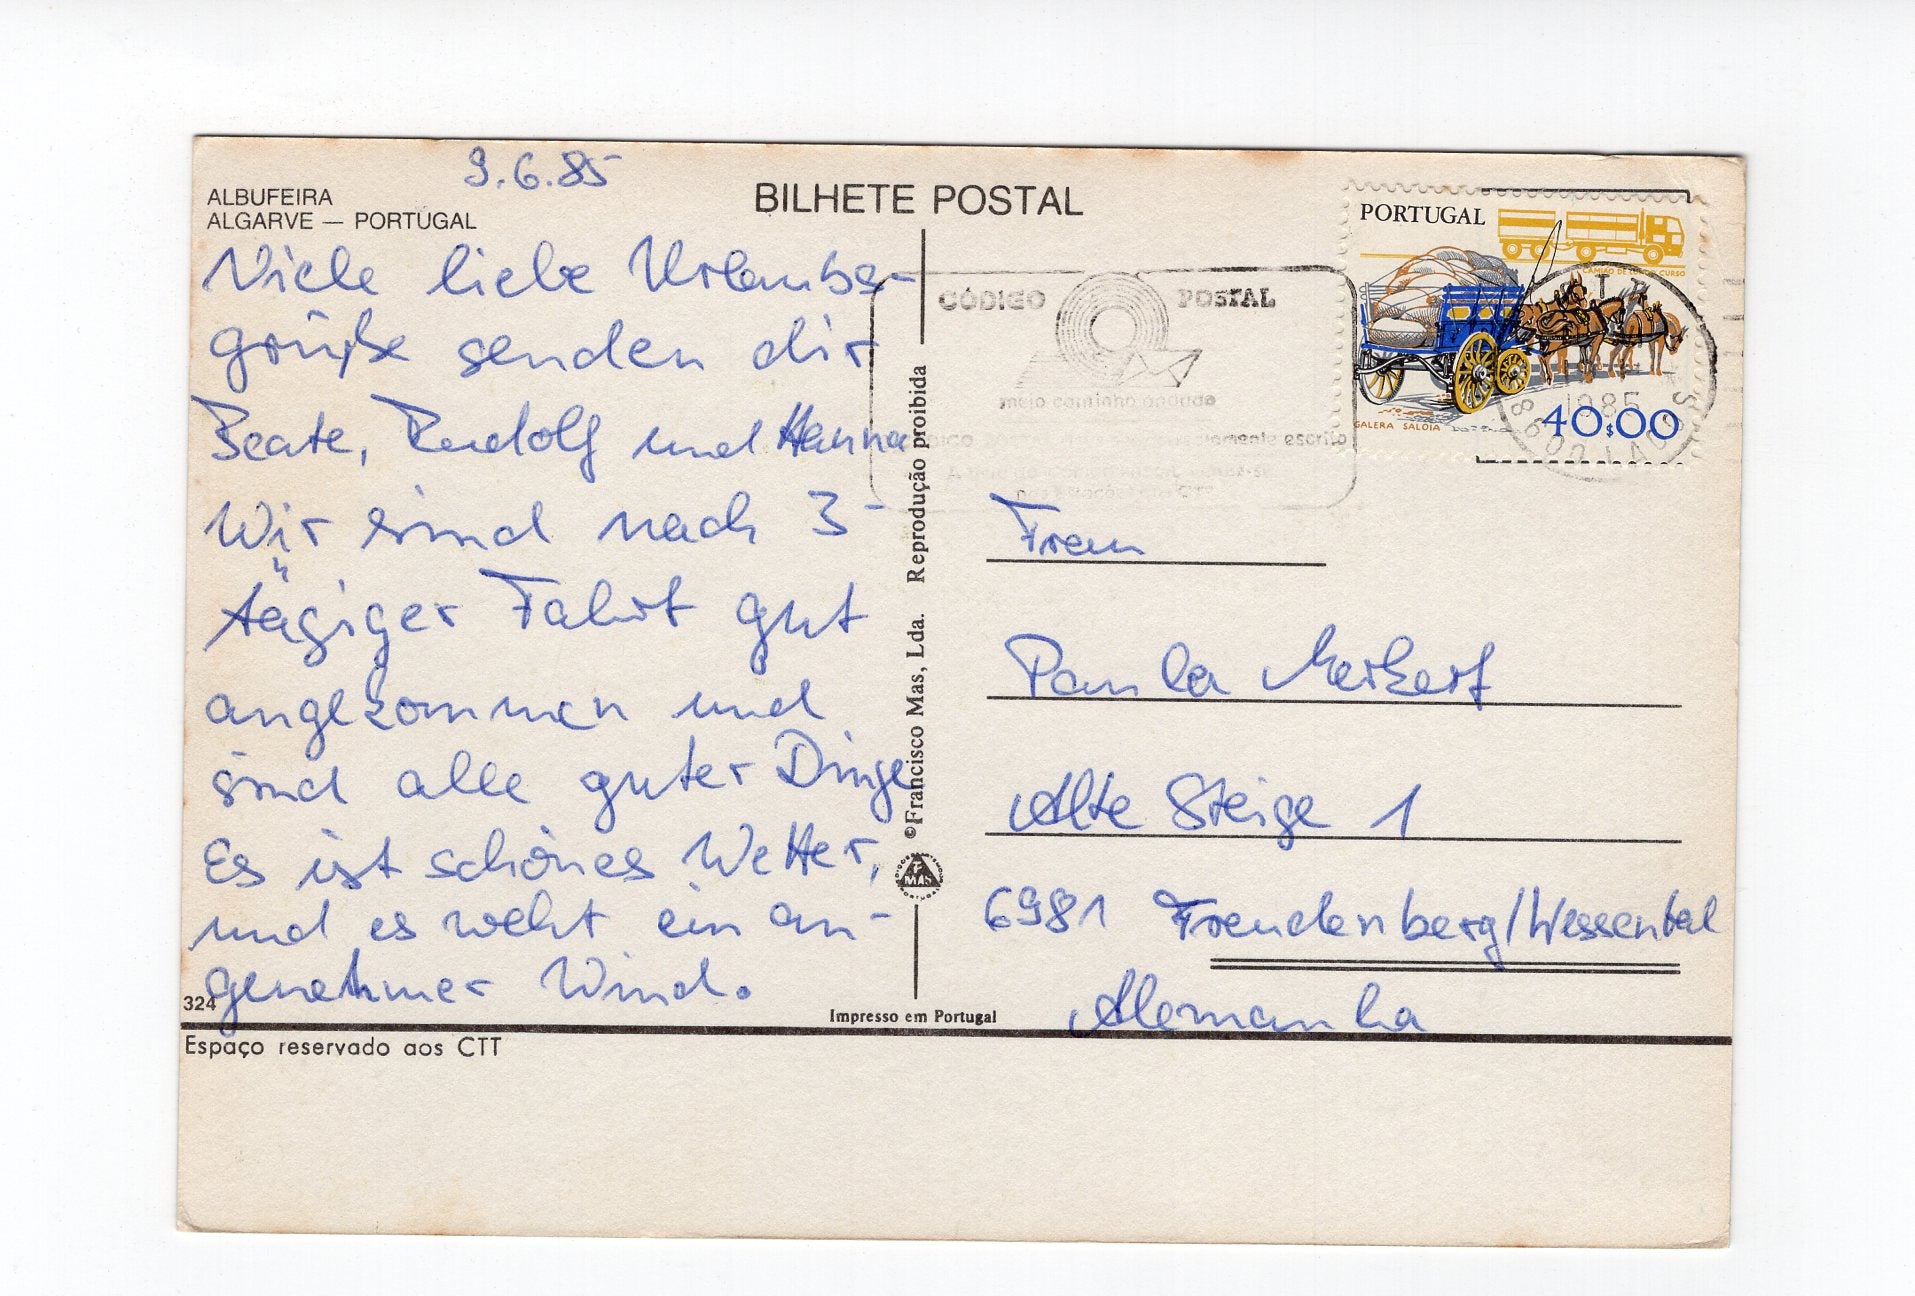 9.6.85
ALBUFEIRA
ALGARVE — PORTUGAL
BILHETE POSTAL
Viele liebe Urlaubs-
grüße senden dir
Beate, Rudolf und Hanna
Wir sind nach 3-
tägiger Fahrt gut
angekommen und
sind alle guter Dinge
Es ist schönes Wetter,
und es weht ein an-
genehmer Wind.
324
Espaço reservado aos CTT
©Francisco Mas, Lda. Reprodução proibida
MAS
Impresso em Portugal
CÓDIGO POSTAL
meio caminho andado
escrito
PORTUGAL
CAMIÃO DE LONGO CURSO
GALERA SALOIA
40$00
1985
Frau
Paula Merkert
Alte Steige 1
6981 Freudenberg/Wessental
Alemanha